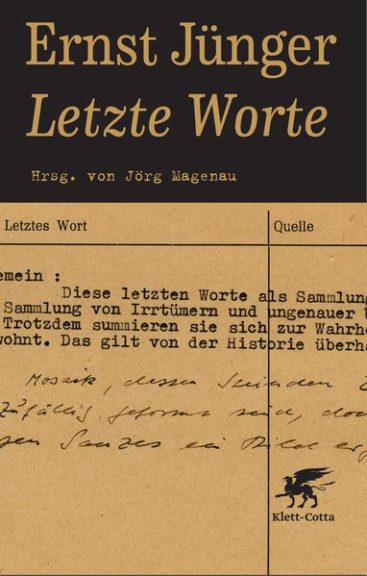 Ernst Jünger
Letzte Worte
Hrsg. von Jörg Magenau
Letztes Wort
Quelle
emein :
Diese letzten Worte als Sammlung
Sammlung von Irrtümern und ungenauer Ü
Trotzdem summieren sie sich zur Wahrhe
wohnt. Das gilt von der Historie überha
Mosaik, dessen
zufällig geformt sind, doch
Ganzes ein Bild
Klett-Cotta